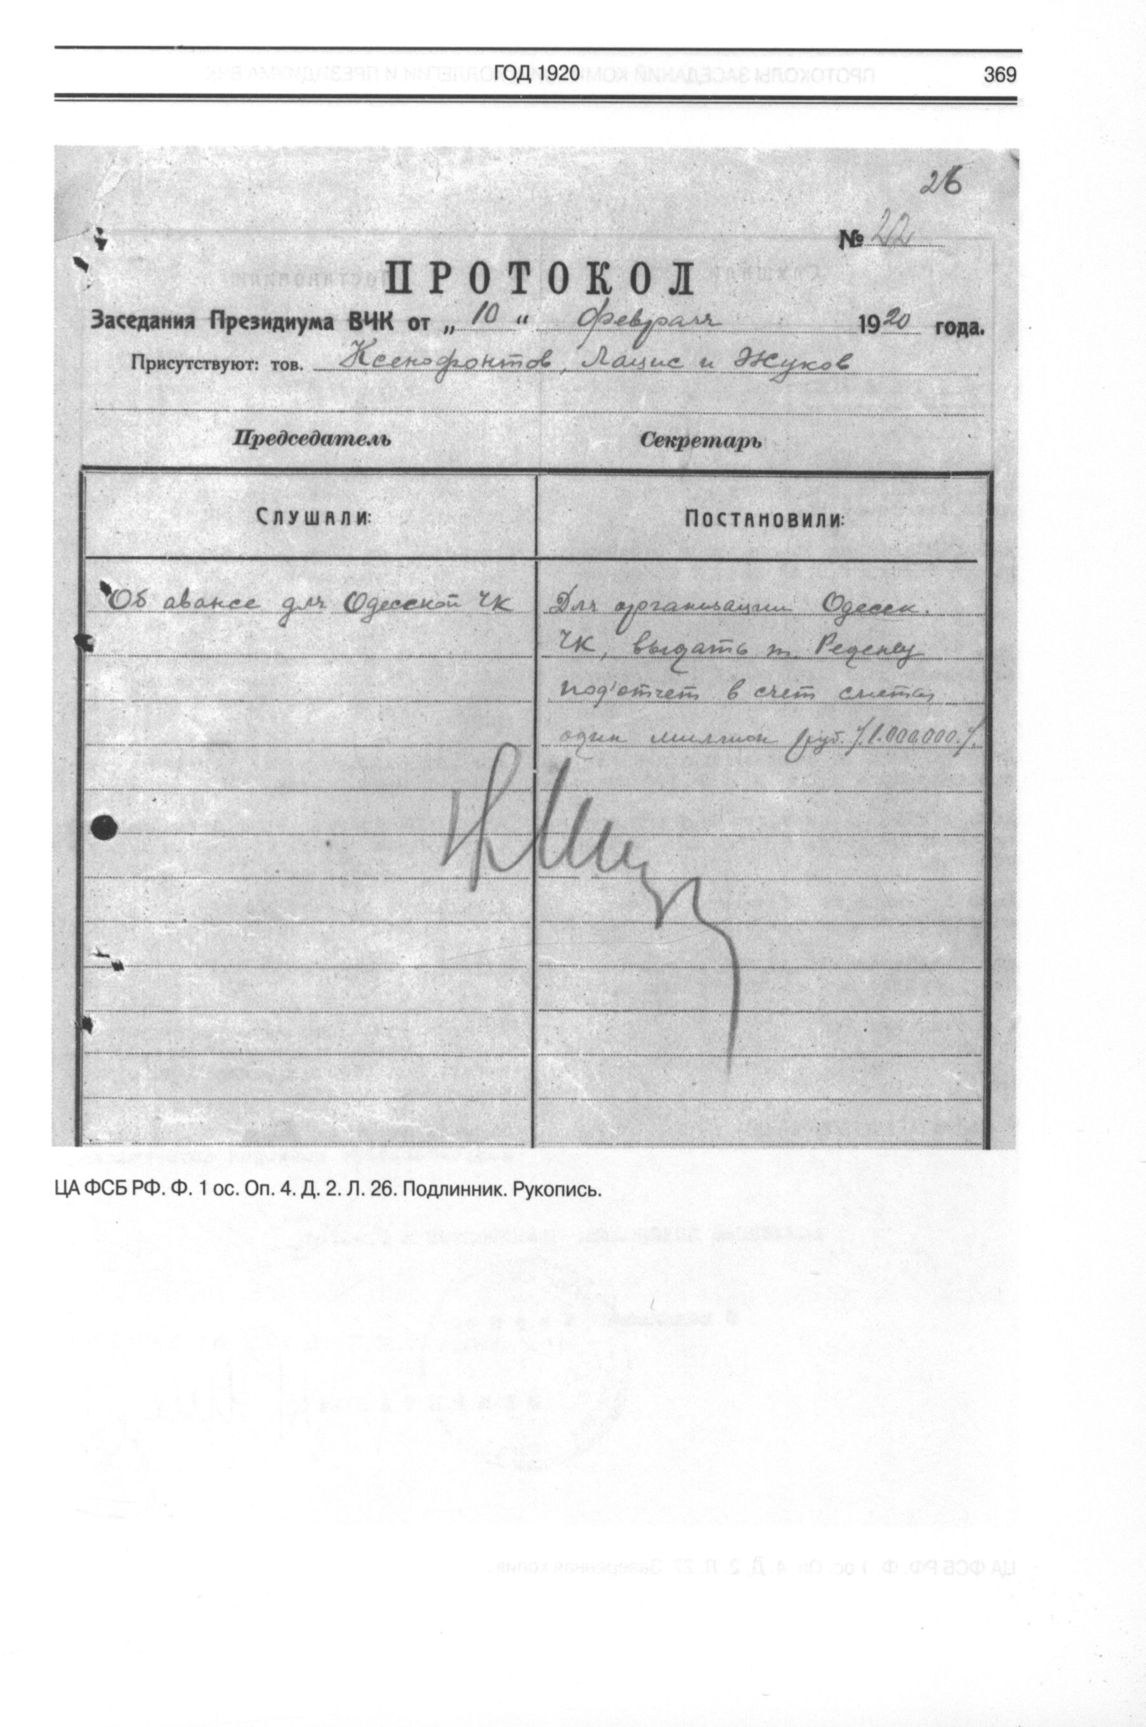 ГОД 1920
369
26
№ 22
ПРОТОКОЛ
Заседания Президиума ВЧК от „ 10 “ февраля 1920 года.
Присутствуют: тов. Ксенофонтов, Лацис и Жуков
Председатель Секретарь
Слушали: Постановили:
Об авансе для Одесской ЧК
Для организации Одесск.
ЧК, выдать т. Реденсу
под'отчет в счет сметы
один миллион руб. /.1.000.000./.
ЦА ФСБ РФ. Ф. 1 ос. Оп. 4. Д. 2. Л. 26. Подлинник. Рукопись.